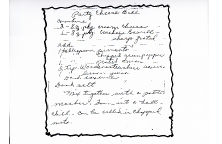 Party Cheese Ball
Combine
2 - 8 pkg. cream cheese
1 - 8 pkg. Crackers Barrell -
sharp grated
Add
1 Tablespoon pimento
1 " chopped green pepper
1 " grated onion
2 Tsp Worcestershire sauce
lemon juice
Dash
Dash salt
Mix together with a potato
masher. Form into a ball -
chill. Can be rolled in chopped
nuts